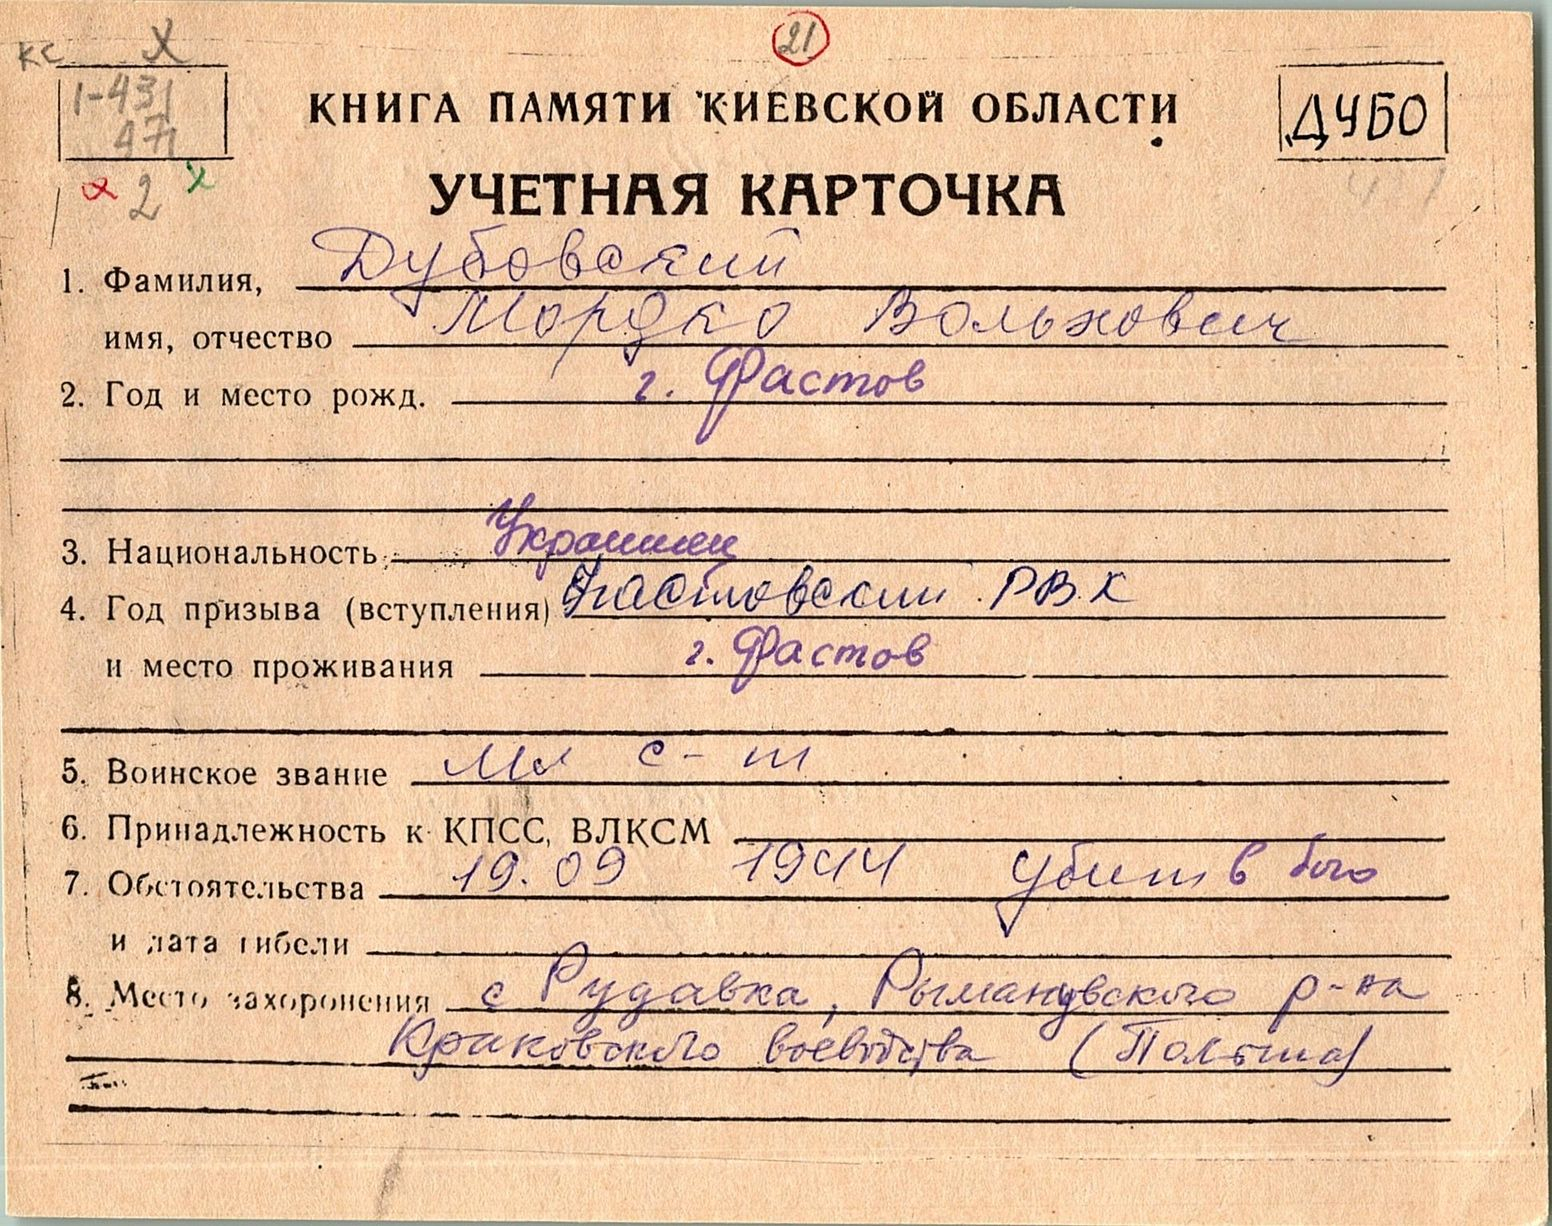 КС X
21
1-431
471
КНИГА ПАМЯТИ КИЕВСКОЙ ОБЛАСТИ
ДУБО
2
УЧЕТНАЯ КАРТОЧКА
1. Фамилия, Дубовский
имя, отчество Мордко Вольхович
2. Год и место рожд. г. Фастов
3. Национальность Украинец
4. Год призыва (вступления) Фастовский РВК
и место проживания г. Фастов
5. Воинское звание Мл с-т
6. Принадлежность к КПСС, ВЛКСМ
7. Обстоятельства 19.09 1944 убит в бою
и дата гибели
8. Место захоронения с Рудавка, Рымановского р-на
Краковского воеводства (Польша)